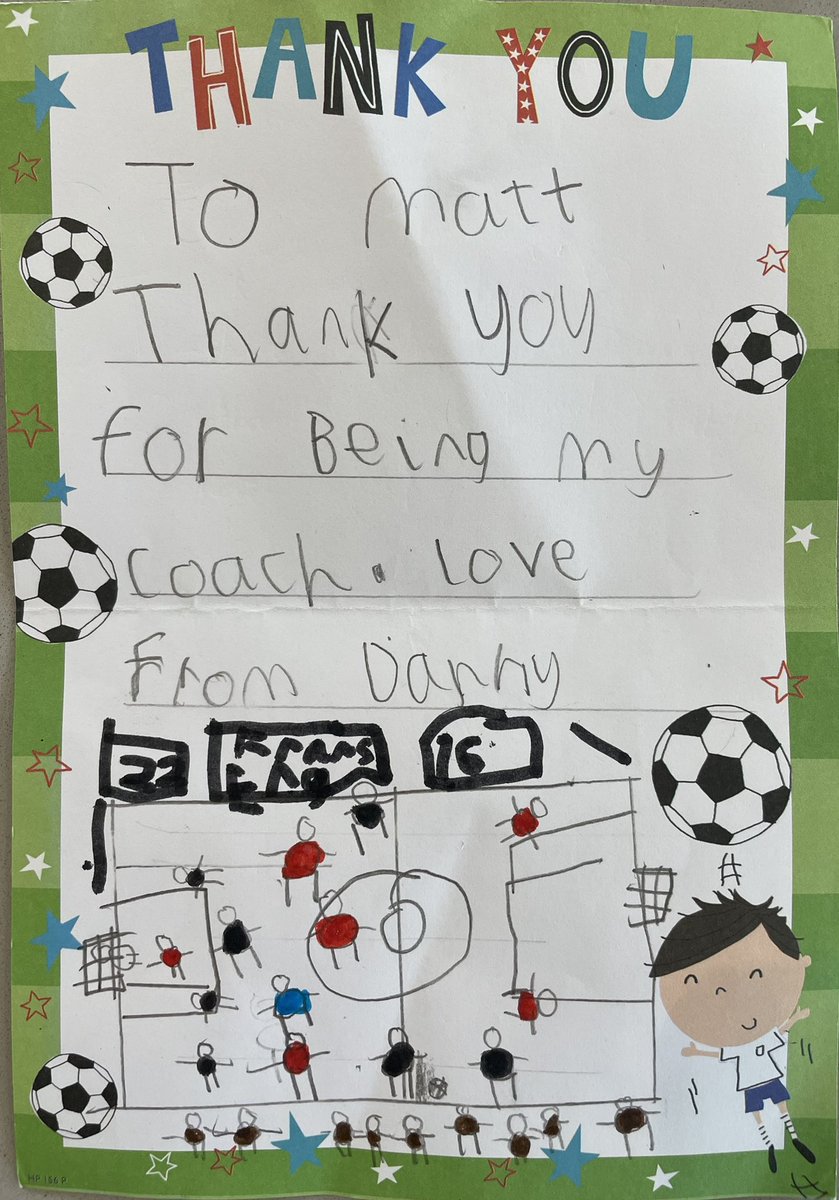 THANK YOU
To Matt
Thank you
for Being my
coach. Love
From Danny
22
16
HP 156 P